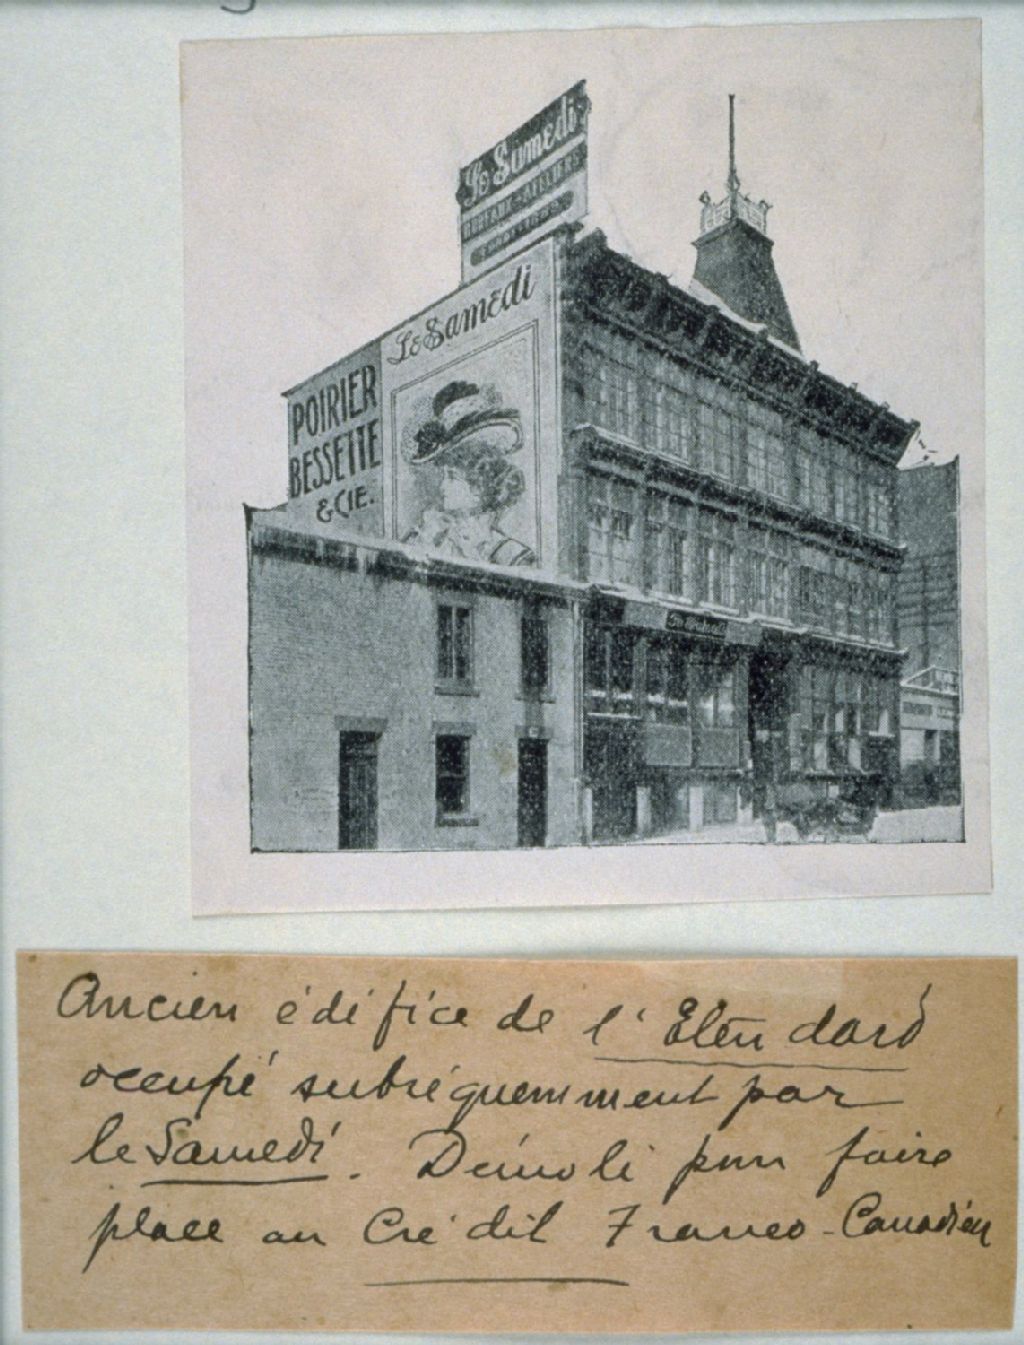 Le Samedi
BUREAUX - ATELIERS
Le Samedi
POIRIER
BESSETTE
& CIE.
Ancien édifice de l'Etendard
occupé subséquemment par
le Samedi. Démoli pour faire
place au Crédit Franco-Canadien